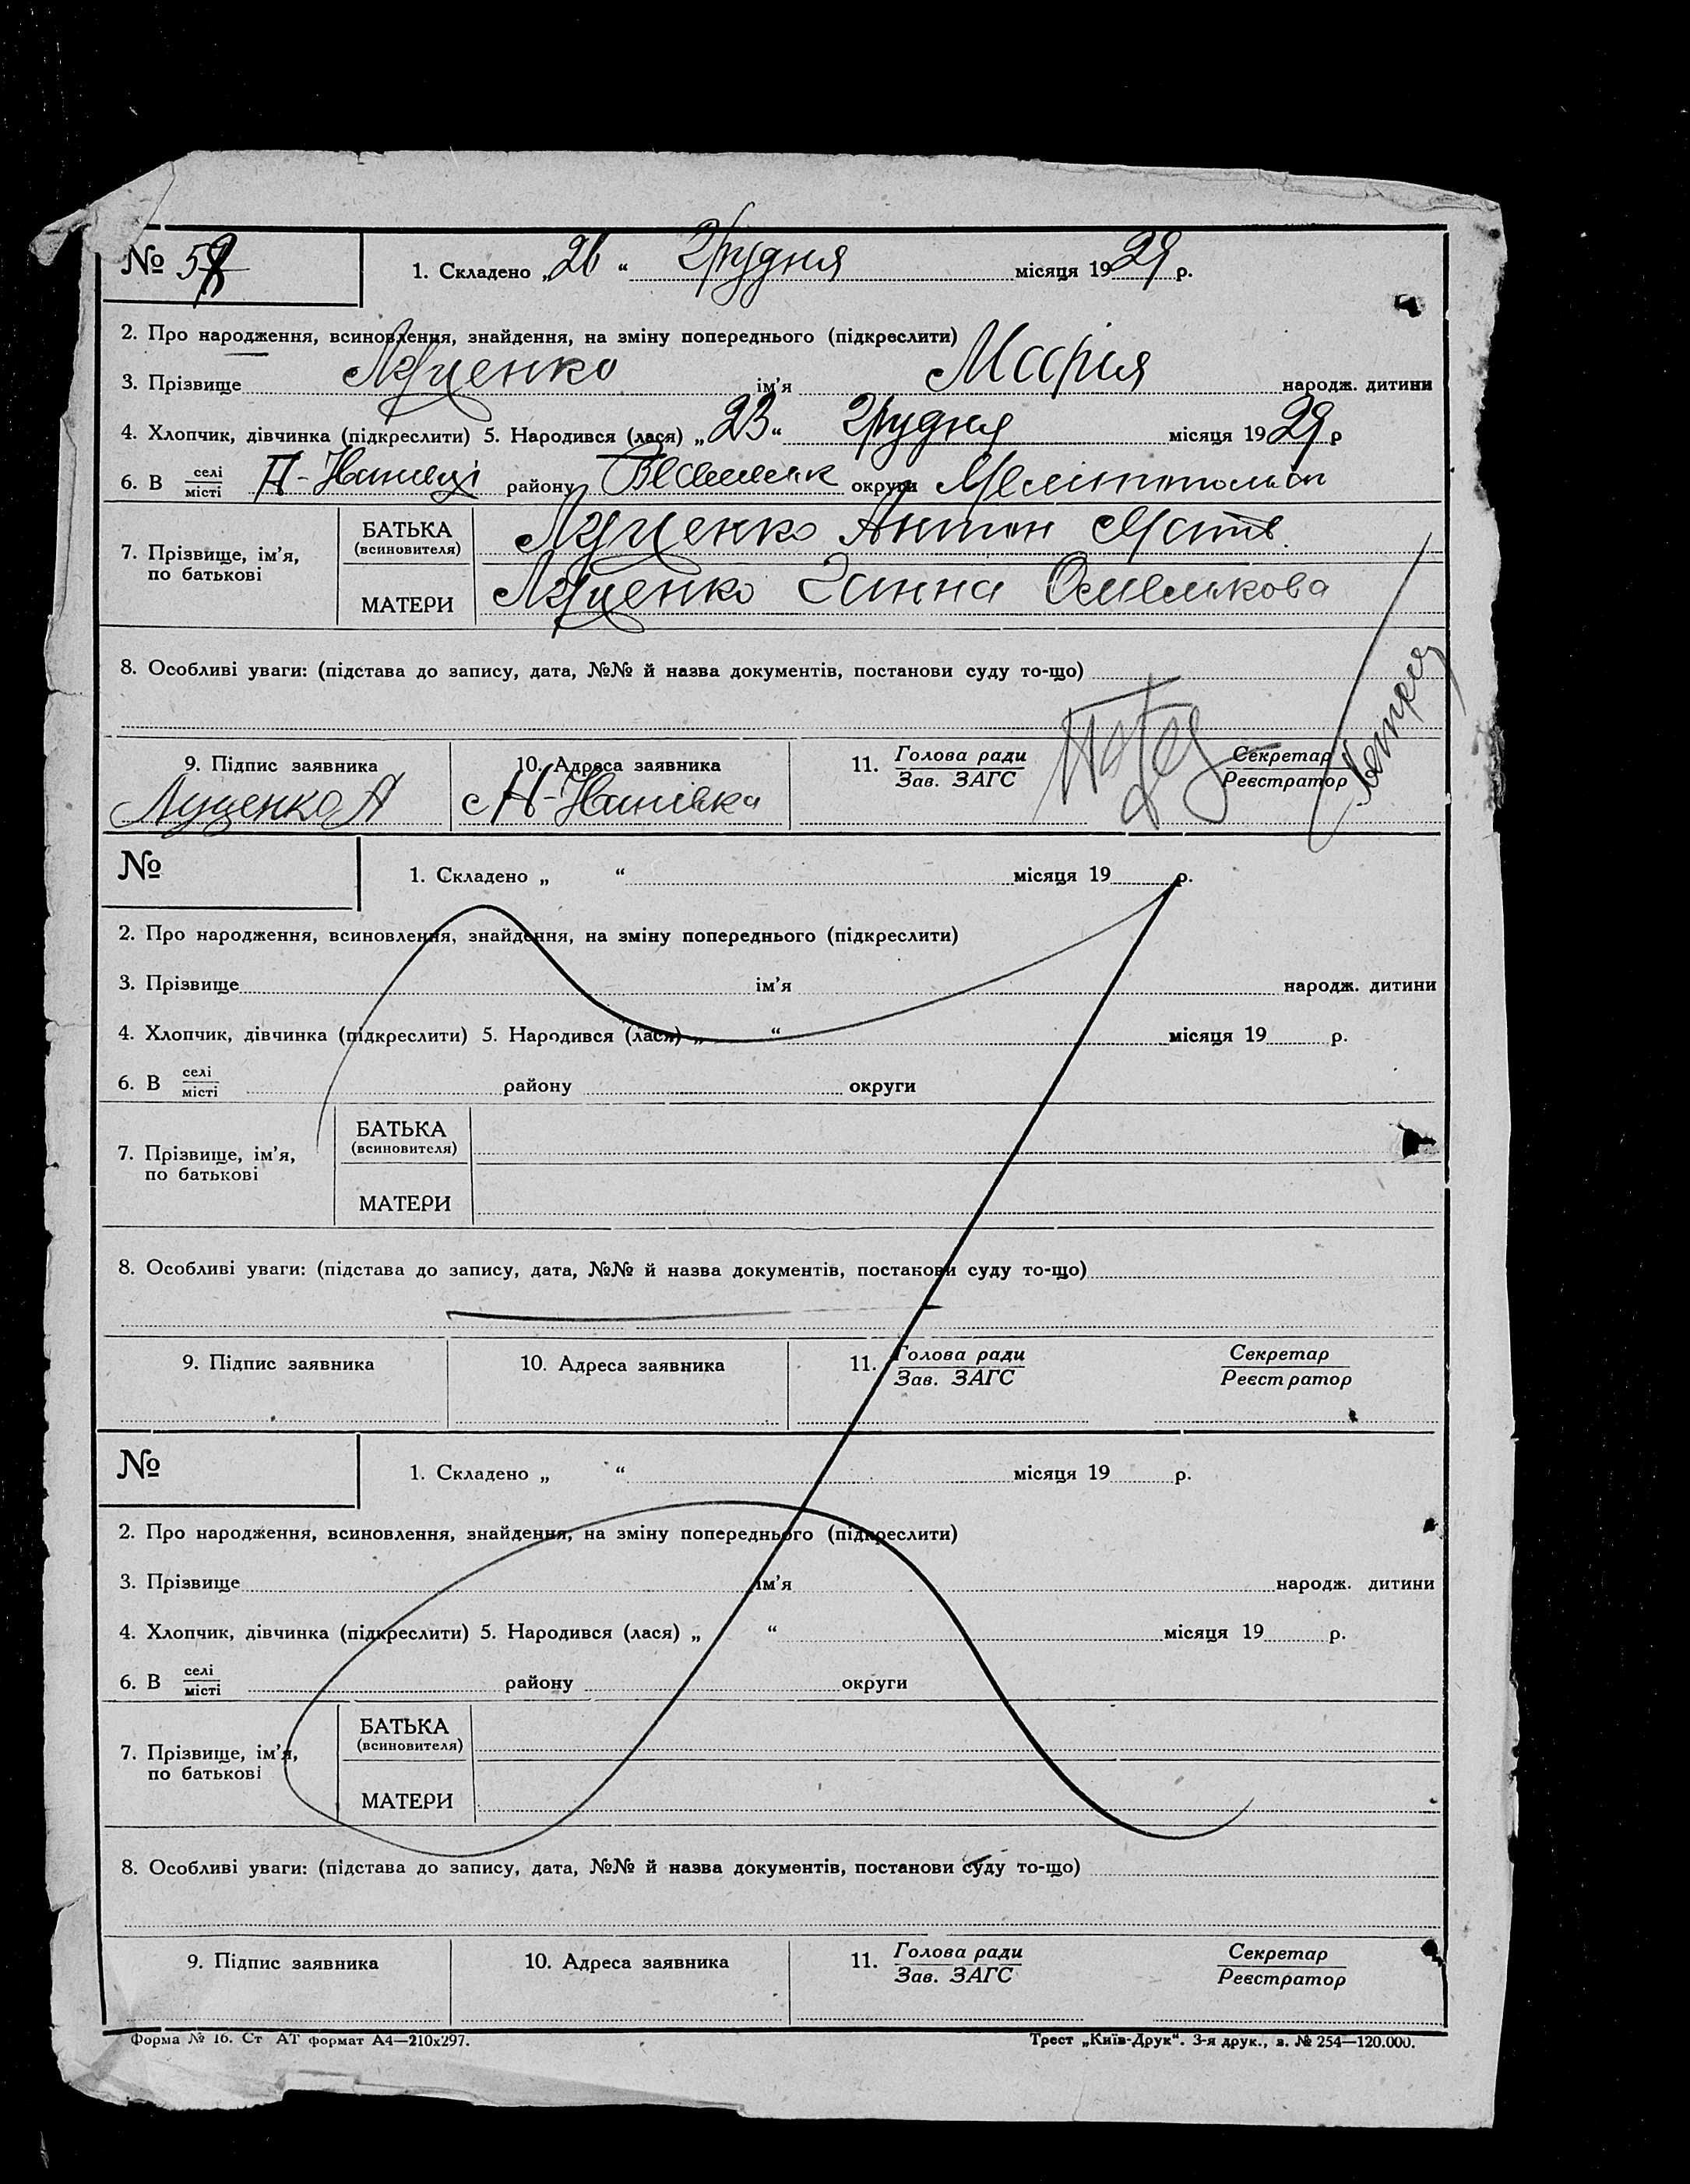 № 57
1. Складено „26“ Грудня місяця 1929 р.
2. Про народження, всиновлення, знайдення, на зміну попереднього (підкреслити)
3. Прізвище Луценко ім'я Марія народж. дитини
4. Хлопчик, дівчинка (підкреслити) 5. Народився (лася) „23“ Грудня місяця 1929 р
6. В селі/місті району округи
7. Прізвище, ім'я, по батькові
БАТЬКА (всиновителя) Луценко Антон
МАТЕРИ Луценко Ганна Омелькова
8. Особливі уваги: (підстава до запису, дата, №№ й назва документів, постанови суду то-що)
9. Підпис заявника 10. Адреса заявника 11. Голова ради/Зав. ЗАГС Секретар/Реєстратор
Луценко А
№
1. Складено „ “ місяця 19 р.
2. Про народження, всиновлення, знайдення, на зміну попереднього (підкреслити)
3. Прізвище ім'я народж. дитини
4. Хлопчик, дівчинка (підкреслити) 5. Народився (лася) „ “ місяця 19 р.
6. В селі/місті району округи
7. Прізвище, ім'я, по батькові
БАТЬКА (всиновителя)
МАТЕРИ
8. Особливі уваги: (підстава до запису, дата, №№ й назва документів, постанови суду то-що)
9. Підпис заявника 10. Адреса заявника 11. Голова ради/Зав. ЗАГС Секретар/Реєстратор
№
1. Складено „ “ місяця 19 р.
2. Про народження, всиновлення, знайдення, на зміну попереднього (підкреслити)
3. Прізвище ім'я народж. дитини
4. Хлопчик, дівчинка (підкреслити) 5. Народився (лася) „ “ місяця 19 р.
6. В селі/місті району округи
7. Прізвище, ім'я, по батькові
БАТЬКА (всиновителя)
МАТЕРИ
8. Особливі уваги: (підстава до запису, дата, №№ й назва документів, постанови суду то-що)
9. Підпис заявника 10. Адреса заявника 11. Голова ради/Зав. ЗАГС Секретар/Реєстратор
Форма № 16. Ст АТ формат А4—210х297. Трест „Київ-Друк“. 3-я друк., з. № 254—120.000.